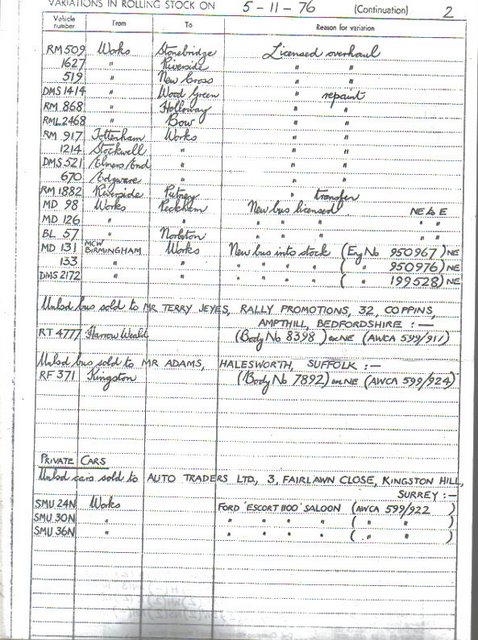 VARIATIONS IN ROLLING STOCK ON 5-11-76 (Continuation) 2
Vehicle number From To Reason for variation
RM 509 Works Stonebridge Licensed overhaul
1627 " Riverside " "
519 " New Cross " "
DMS 1414 " Wood Green " repaint
RM 868 " Holloway " "
RML 2468 " Bow " "
RM 917 Tottenham Works " "
1214 Stockwell " " "
DMS 521 /Elmers/End " " "
670 /Edgware " " "
RM 1882 Riverside Putney " transfer
MD 98 Works Peckham New bus licensed NE & E
MD 126 " " " " " " " "
BL 57 " Norbiton " " " " "
MD 131 MCW BIRMINGHAM Works New bus into stock (Eng No 950967) NE
133 " " " " " " ( " 950976) NE
DMS 2172 " " " " " " ( " 199528) NE
Unlsd bus sold to MR TERRY JEYES, RALLY PROMOTIONS, 32, COPPINS,
AMPTHILL, BEDFORDSHIRE :—
RT 4777 Harrow Weald (Body No 8398) on NE (AWCA 599/911)
Unlsd bus sold to MR ADAMS, HALESWORTH, SUFFOLK :—
RF 371 Kingston (Body No 7892) on NE (AWCA 599/924)
PRIVATE CARS
Unlsd cars sold to AUTO TRADERS LTD, 3, FAIRLAWN CLOSE, KINGSTON HILL,
SURREY :—
SMU 24N Works FORD 'ESCORT 1100' SALOON (AWCA 599/922 )
SMU 30N " " " " " ( " " )
SMU 36N " " " " " ( " " )